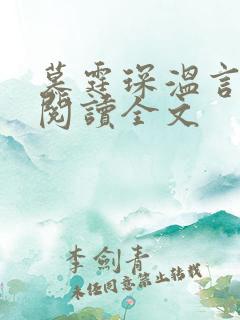 墓霆琛溫言
閱讀全文
李劍青
未经同意禁止转载